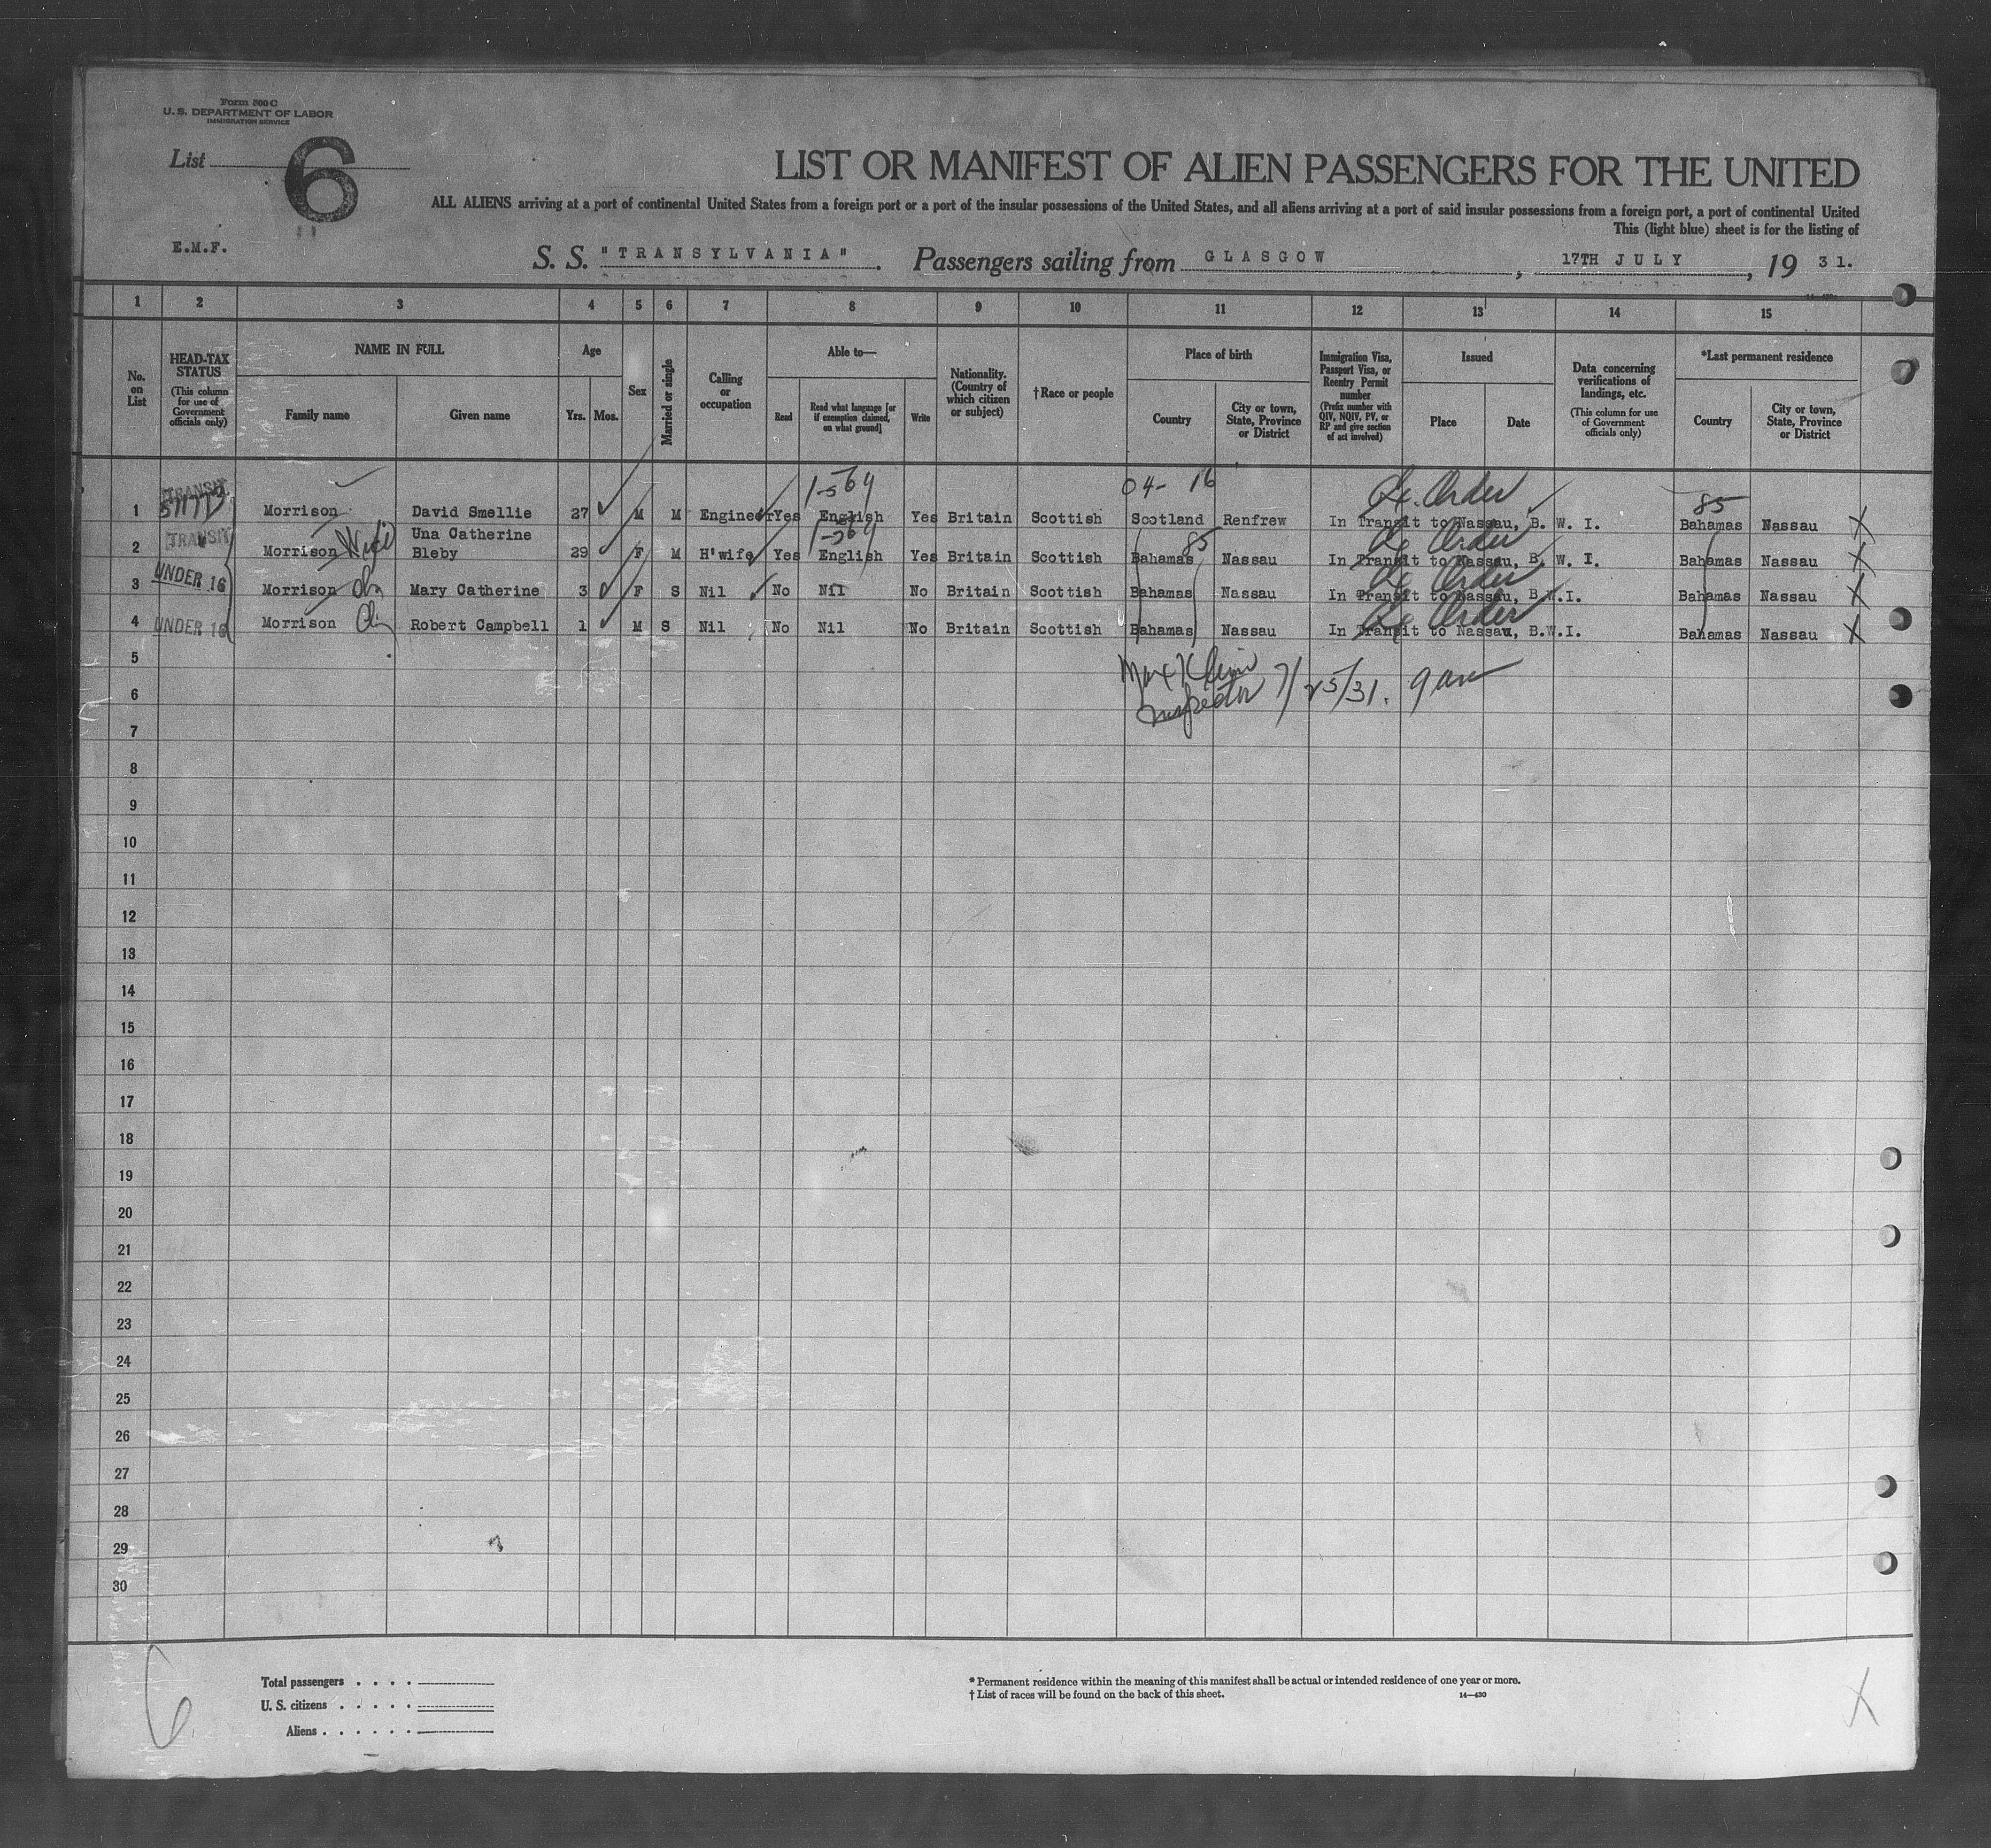 Form 500 C
U. S. DEPARTMENT OF LABOR
IMMIGRATION SERVICE
List 6
LIST OR MANIFEST OF ALIEN PASSENGERS FOR THE UNITED
ALL ALIENS arriving at a port of continental United States from a foreign port or a port of the insular possessions of the United States, and all aliens arriving at a port of said insular possessions from a foreign port, a port of continental United
This (light blue) sheet is for the listing of
E.M.F.
S. S. "TRANSYLVANIA". Passengers sailing from GLASGOW, 17TH JULY, 1931.
1 2 3 4 5 6 7 8 9 10 11 12 13 14 15
No. on List
HEAD-TAX STATUS (This column for use of Government officials only)
NAME IN FULL
Family name
Given name
Age
Yrs. Mos.
Sex
Married or single
Calling or occupation
Able to—
Read
Read what language [or if exemption claimed, on what ground]
Write
Nationality. (Country of which citizen or subject)
†Race or people
Place of birth
Country
City or town, State, Province or District
Immigration Visa, Passport Visa, or Reentry Permit number (Prefix number with QIV, NQIV, PV, or RP and give section of act involved)
Issued
Place
Date
Data concerning verifications of landings, etc. (This column for use of Government officials only)
*Last permanent residence
Country
City or town, State, Province or District
TRANSIT 04- 16 Ex. Order 85
1 Morrison David Smellie 27 M M Engineer Yes English Yes Britain Scottish Scotland Renfrew In Transit to Nassau, B. W. I. Bahamas Nassau X
TRANSIT Wife Una Catherine 85 Ex Order
2 Morrison Bleby 29 F M H'wife Yes English Yes Britain Scottish Bahamas Nassau In Transit to Nassau, B. W. I. Bahamas Nassau X
UNDER 16 Ex Order
3 Morrison Mary Catherine 3 F S Nil No Nil No Britain Scottish Bahamas Nassau In Transit to Nassau, B.W.I. Bahamas Nassau X
UNDER 16 Ex Order
4 Morrison Robert Campbell 1 M S Nil No Nil No Britain Scottish Bahamas Nassau In Transit to Nassau, B.W.I. Bahamas Nassau X
5
Inspector 7/25/31. 9 am
6
7
8
9
10
11
12
13
14
15
16
17
18
19
20
21
22
23
24
25
26
27
28
29
30
6
Total passengers . . . .
U. S. citizens . . . . .
Aliens . . . . . .
* Permanent residence within the meaning of this manifest shall be actual or intended residence of one year or more.
† List of races will be found on the back of this sheet.
14—430
X